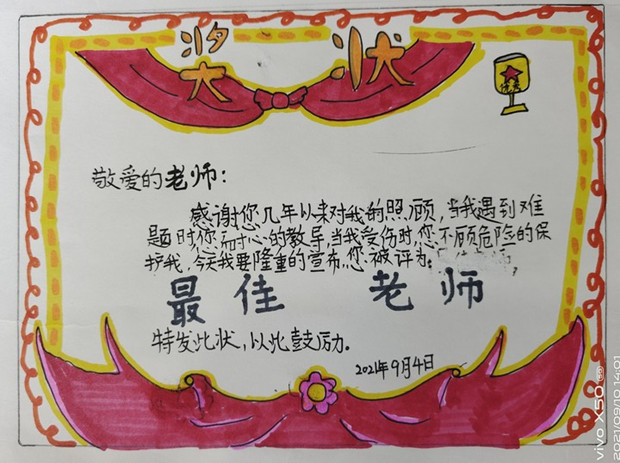 奖状
优秀
敬爱的老师：
感谢您几年以来对我的照顾，当我遇到难
题时，您耐心的教导，当我受伤时，您不顾危险的保
护我，今天我要隆重的宣布，您被评为：
最佳 老师
特发此状，以此鼓励。
2021年9月4日
vivo X50
2021/09/10 14:01